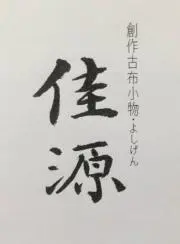 創作古布小物・よしげん
佳源